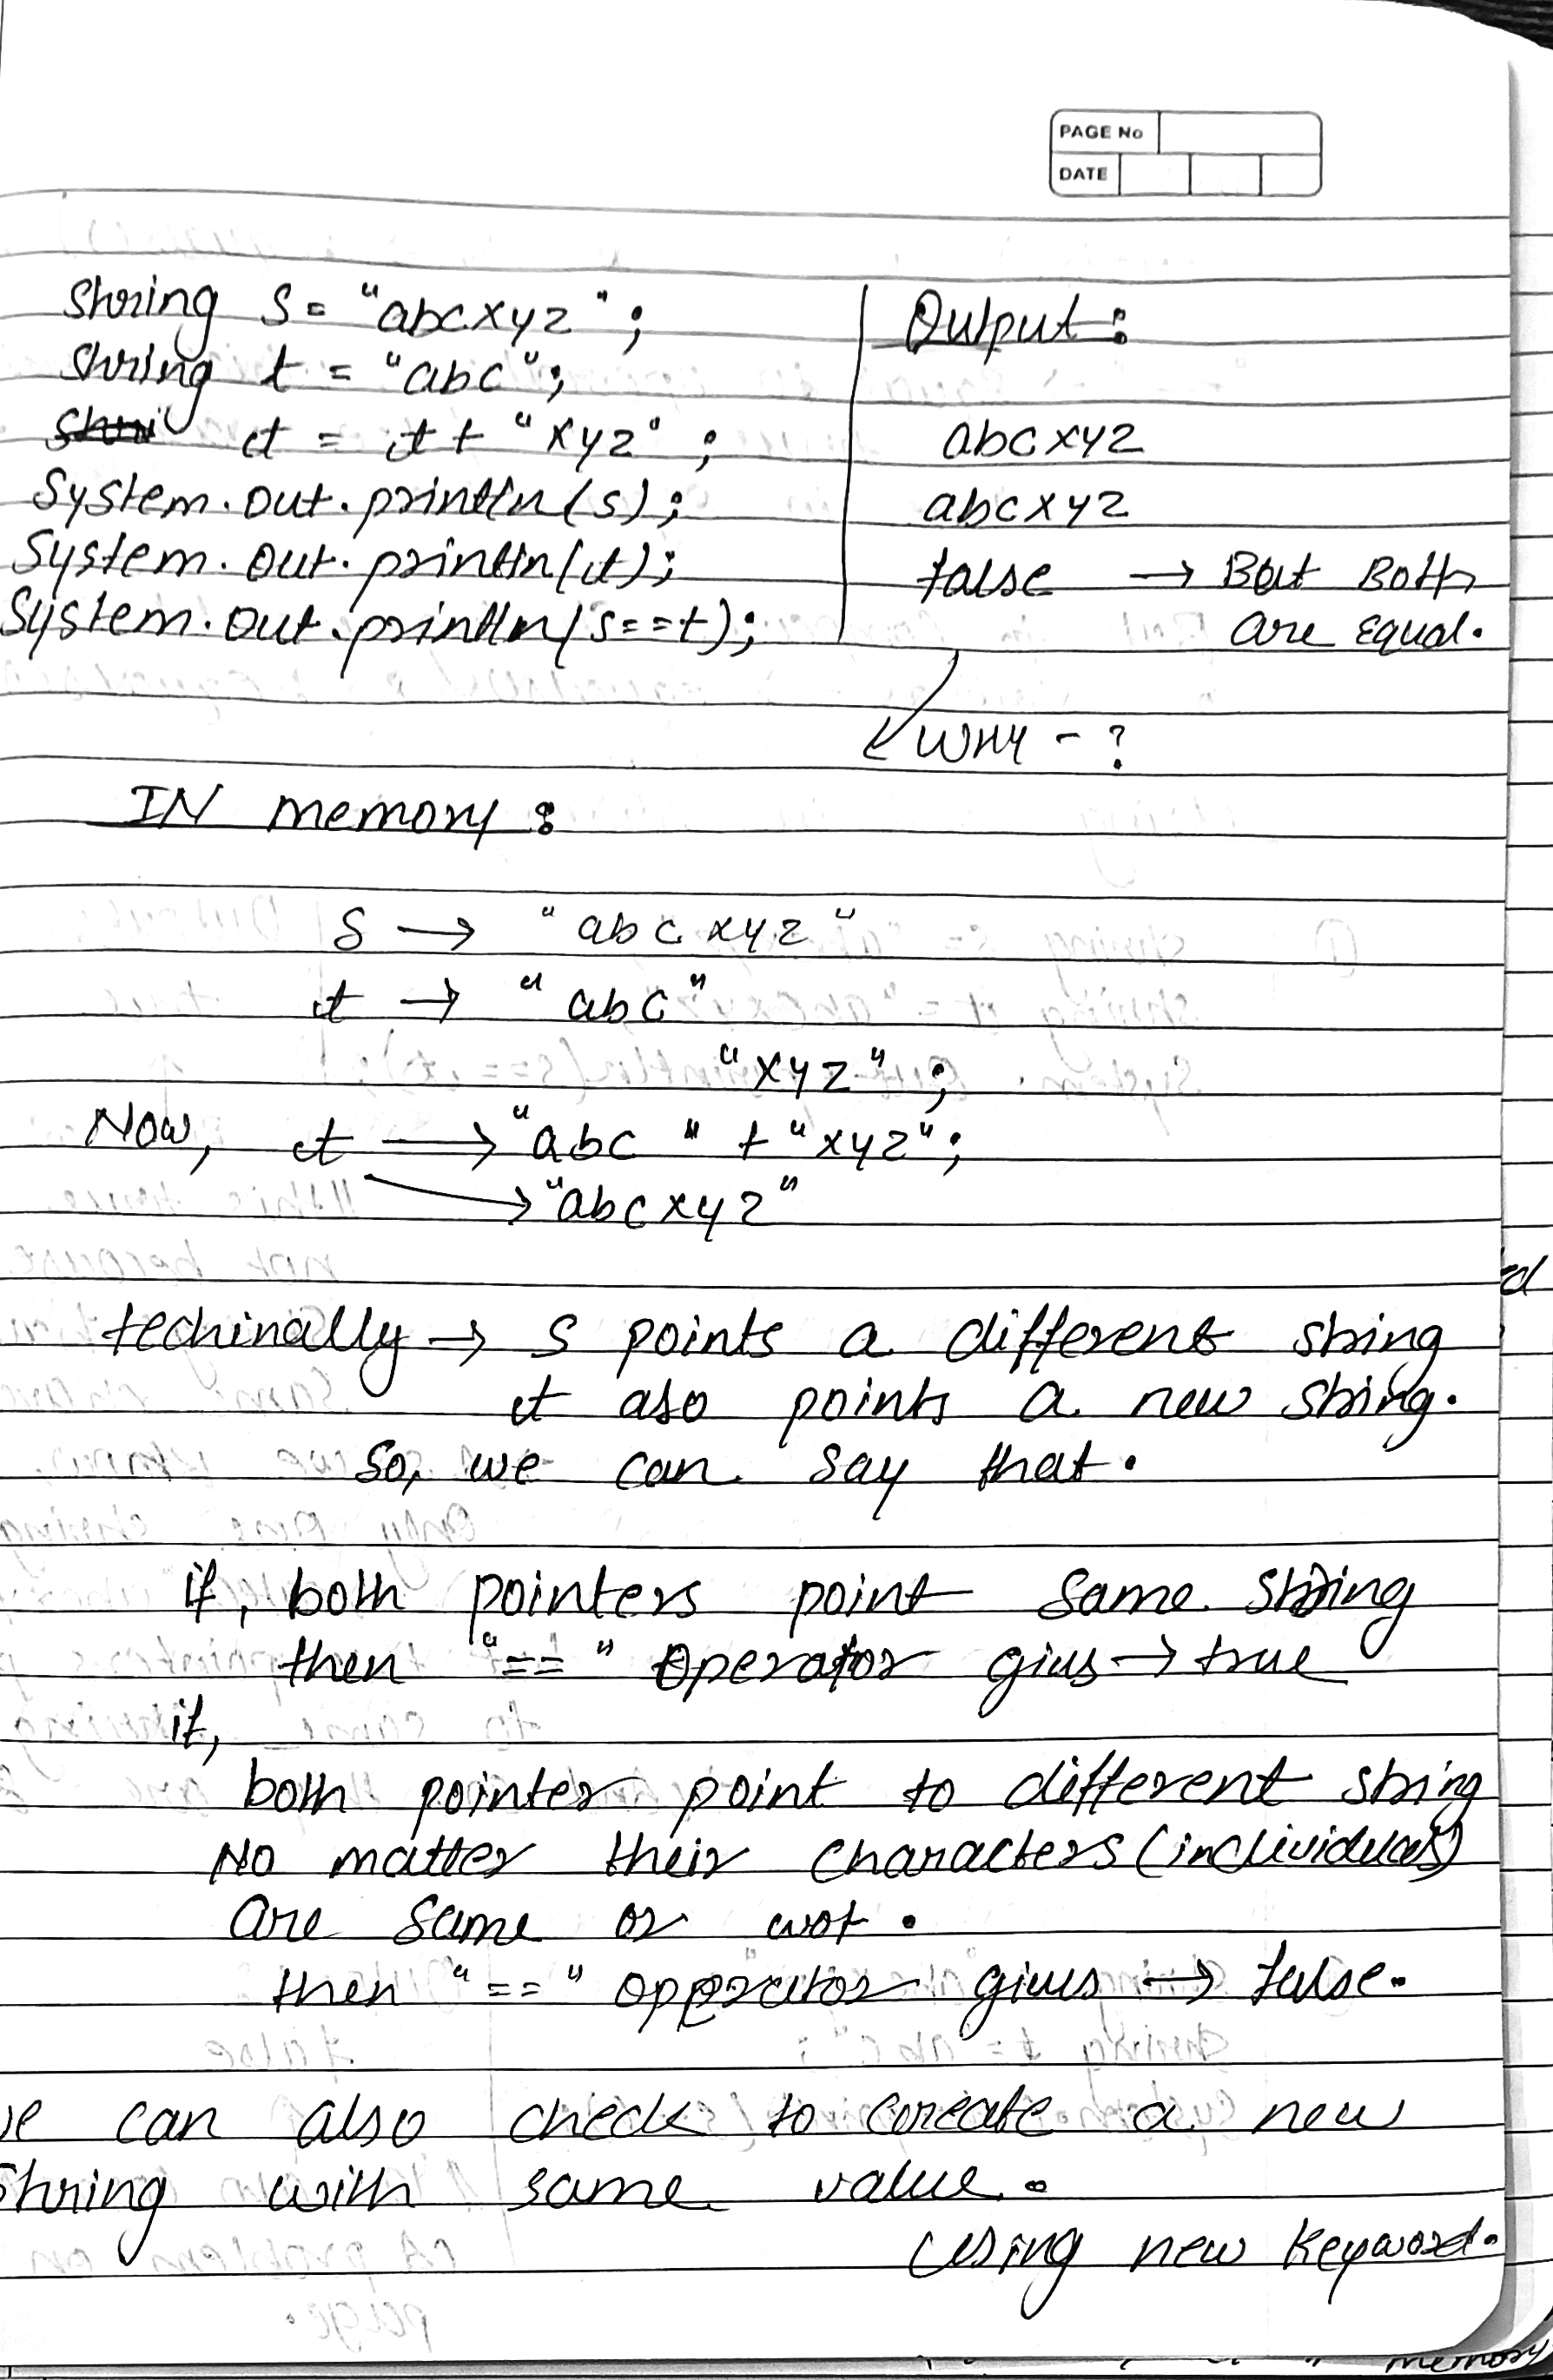 PAGE No
DATE
String s = "abcxyz";
String t = "abc";
t = t + "xyz";
System.out.println(s);
System.out.println(t);
System.out.println(s==t);
Output:
abcxyz
abcxyz
false → But Both
are equal.
WHY - ?
IN memory:
s → "abcxyz"
t → "abc"
"xyz";
Now, t → "abc" + "xyz";
→ "abcxyz"
techinally → s points a different string
t also points a new string.
So, we can say that.
if, both pointers point same string
then "==" operator gius → true
if,
both pointer point to different string
No matter their characters (individual)
are same or not.
then "==" opperator gives → false.
can also check to create a new
String with same value.
using new keyword.
memory